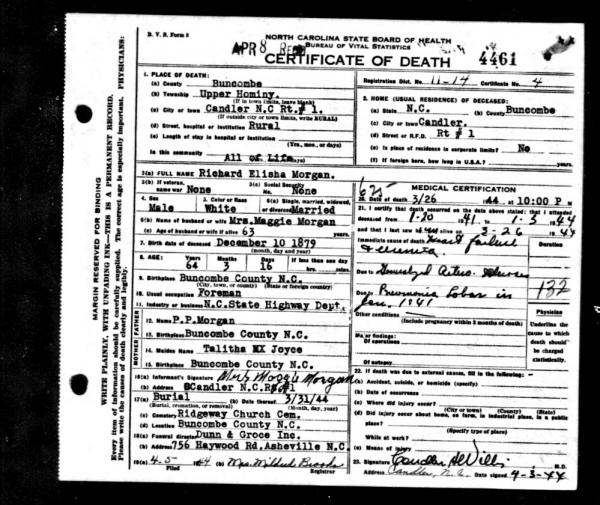 D. V. S. Form 8
NORTH CAROLINA STATE BOARD OF HEALTH
BUREAU OF VITAL STATISTICS
APR 8
CERTIFICATE OF DEATH
4461
Registration Dist. No. 11-14 Certificate No. 4
MARGIN RESERVED FOR BINDING
WRITE PLAINLY, WITH UNFADING INK—THIS IS A PERMANENT RECORD.
Every item of information should be carefully supplied. The correct age is especially important. PHYSICIANS:
Please write the causes of death clearly and legibly.
1. PLACE OF DEATH:
(a) County Buncombe
(b) Township Upper Hominy.
(If in town limits, leave blank)
(c) City or town Candler N.C Rt.# 1.
(If outside city or town limits, write RURAL)
(d) Street, hospital or institution Rural
(e) Length of stay in hospital or institution
(Yrs., mos., or days)
In this community All of Life
2. HOME (USUAL RESIDENCE) OF DECEASED:
(a) State N.C. (b) County Buncombe
(c) City or town Candler.
(d) Street or R.F.D. Rt # 1
(e) Is place of residence in corporate limits? No
(f) If foreign born, how long in U.S.A.? yrs.
3(a) FULL NAME Richard Elisha Morgan.
3(b) If veteran, name war None
3(c) Social Security No. None
4. Sex Male
5. Color or Race White
6(a) Single, married, widowed, or divorced Married
6(b) Name of husband or wife Mrs.Maggie Morgan
6(c) Age of husband or wife if alive 63 years
7. Birth date of deceased December 10 1879
(month, day and year)
8. AGE: Years 64 Months 3 Days 16 If less than one day hrs. min.
9. Birthplace Buncombe County N.C.
(City, town, or county) (State or foreign country)
10. Usual occupation Foreman
11. Industry or business N.C.State Highway Dept.
FATHER
12. Name P.P.Morgan
13. Birthplace Buncombe County N.C.
MOTHER
14. Maiden Name Talitha Joyce
15. Birthplace Buncombe County N.C.
16(a) Informant's Signature Morgan
(b) Address Candler N.C.R#1
17(a) Burial (b) Date thereof 3/31/44
(Burial, cremation, or removal) (Month, day, year)
(c) Cemetery Ridgeway Church Cem.
(d) Location Buncombe County N.C.
18(a) Funeral director Dunn & Groce Inc.
(b) Address 756 Haywood Rd.Asheville N.C.
19(a) 4-5 1944 (b) Mrs. Mildred Brooks
Filed Registrar
MEDICAL CERTIFICATION
20. Date of death 3/26 1944 at 10:00 P M
21. I certify that death occurred on the date above stated; that I attended
deceased from 1-20 1941 to 1-3 1944
and that I last saw him alive on 3-26 1944
Immediate cause of death Heart failure
Duration
Due to
Due to Pneumonia Lobar in
Jan. 1941
132
Other conditions
(Include pregnancy within 3 months of death)
Ma or findings:
Of operations
Of autopsy
Physician
Underline the cause to which death should be charged statistically.
22. If death was due to external causes, fill in the following:
(a) Accident, suicide, or homicide (specify)
(b) Date of occurrence
(c) Where did injury occur?
(City or town) (County) (State)
(d) Did injury occur about home, on farm, in industrial place, in a public place?
(Specify type of place)
While at work?
(e) Means of injury
23. Signature M.D.
Address Candler, N.C. Date signed 4-3-44